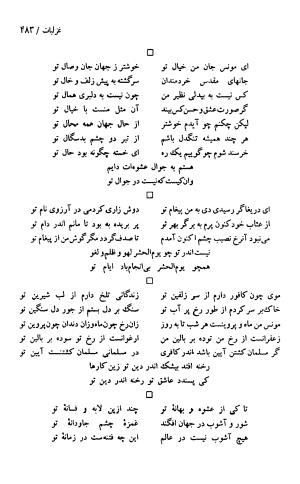 غزلیات / ۴۸۳
ای مونس جان من خیال تو خوشتر ز جهان جان وصال تو
جانهای مقدس خردمندان سرگشته به پیش زلف و خال تو
کس نیست به بیدلی نظیر من چون نیست به دلبری همال تو
گر صورت عشق و حسن کس بیند آن مثل منست یا خیال تو
لیکن چکنم چو آیدم خوشتر از حال جهان همه محال تو
هر چند همیشه تنگدل باشم از تیر دو چشم بدسگال تو
خرسند شوم چو گوییم یک ره ای خسته چگونه بود حال تو
هستم به جوال عشوه‌ات دایم
وان کیست که نیست در جوال تو
ای دریغا گر رسیدی دی به من پیغام تو دوش زاری کردمی در آرزوی نام تو
از عتاب خود کنون پرم به بر گهر تو پر بریده به بود تا مانم اندر دام تو
می‌نبود آنرخ نصیب چشم اکنون آمدم تا صدف گردد مگر گوش من از پیغام تو
نیست اندر تو چو یوم الحشر لهو و ظلم و لغو
همچو یوم الحشر بی‌انجام باد ایام تو
موی چون کافور دارم از سر زلفین تو زندگانی تلخ دارم از لب شیرین تو
خاک بر سر کردم از طور رخ پر آب تو سنگ بر دل بستم از جور دل سنگین تو
مونس من ماه و پروینست هر شب تا به روز زان رخ چون ماه وزان دندان چون پروین تو
زعفرانست از رخ من توده بر بالین من ارغوانست از رخ تو سوده بر بالین تو
گر مسلمان کشتن آیین باشد اندر کافری در مسلمانی مسلمان کشتنست آیین تو
رخنه افتد بیشک اندر دین تو زین کارها
کی پسندد عاشق تو رخنه اندر دین تو
تا کی از عشوه و بهانهٔ تو چند ازین لابه و فسانهٔ تو
شور و آشوب در جهان افگند غمزهٔ چشم جاودانهٔ تو
هیچ آشوب نیست در عالم این چه فتنه‌ست در زمانهٔ تو